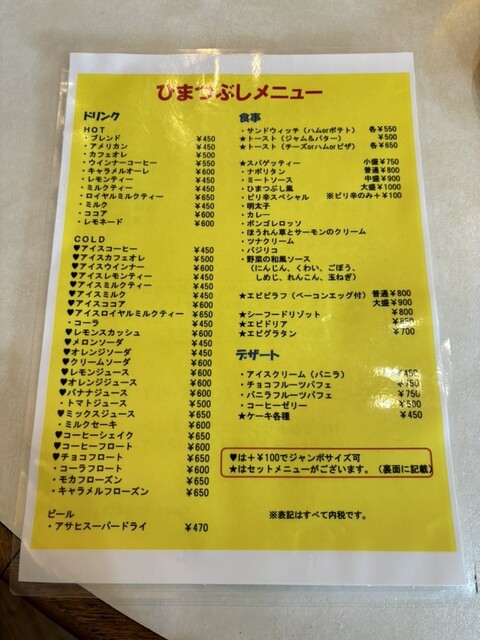 ひまつぶしメニュー
ドリンク
HOT
・ブレンド ¥450
・アメリカン ¥450
・カフェオレ ¥500
・ウインナーコーヒー ¥550
・キャラメルオーレ ¥600
・レモンティー ¥450
・ミルクティー ¥450
・ロイヤルミルクティー ¥650
・ミルク ¥450
・ココア ¥600
・レモネード ¥600
COLD
♥アイスコーヒー ¥450
♥アイスカフェオレ ¥500
♥アイスウインナー ¥600
♥アイスレモンティー ¥450
♥アイスミルクティー ¥450
♥アイスミルク ¥450
♥アイスココア ¥600
♥アイスロイヤルミルクティー ¥650
・コーラ ¥450
♥レモンスカッシュ ¥600
♥メロンソーダ ¥450
♥オレンジソーダ ¥450
♥クリームソーダ ¥600
♥レモンジュース ¥600
♥オレンジジュース ¥600
♥バナナジュース ¥600
・トマトジュース ¥500
♥ミックスジュース ¥650
・ミルクセーキ ¥600
♥コーヒーシェイク ¥650
♥コーヒーフロート ¥600
♥チョコフロート ¥650
・コーラフロート ¥600
・モカフローズン ¥650
・キャラメルフローズン ¥650
ビール
・アサヒスーパードライ ¥470
食事
・サンドウィッチ(ハムorポテト) 各¥550
★トースト(ジャム&バター) ¥500
★トースト(チーズorハムorピザ) 各¥650
★スパゲッティー 小盛¥750
・ナポリタン 普通¥800
・ミートソース 中盛¥900
・ひまつぶし風 大盛¥1000
・ピリ辛スペシャル ※ピリ辛のみ+¥100
・明太子
・カレー
・ボンゴレロッソ
・ほうれん草とサーモンのクリーム
・ツナクリーム
・バジリコ
・野菜の和風ソース
(にんじん、くわい、ごぼう、
しめじ、れんこん、玉ねぎ)
★エビピラフ(ベーコンエッグ付) 普通¥800
大盛¥900
★シーフードリゾット ¥800
★エビドリア ¥850
★エビグラタン ¥700
デザート
・アイスクリーム(バニラ) ¥450
・チョコフルーツパフェ ¥750
・バニラフルーツパフェ ¥750
・コーヒーゼリー ¥500
★ケーキ各種 ¥450
♥は+¥100でジャンボサイズ可
★はセットメニューがございます。(裏面に記載)
※表記はすべて内税です。